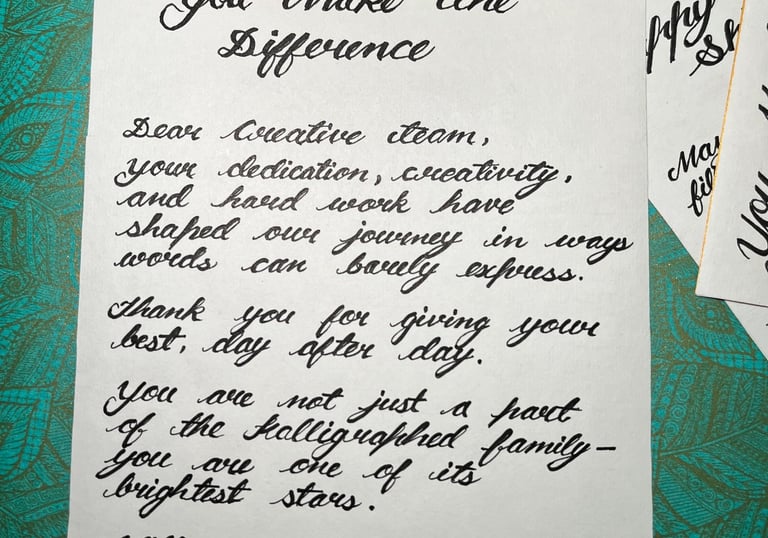 You Make the
Difference
Dear Creative team,
your dedication, creativity,
and hard work have
shaped our journey in ways
words can barely express.
Thank you for giving your
best, day after day.
You are not just a part
of the Kalligraphed family—
you are one of its
brightest stars.
May
You